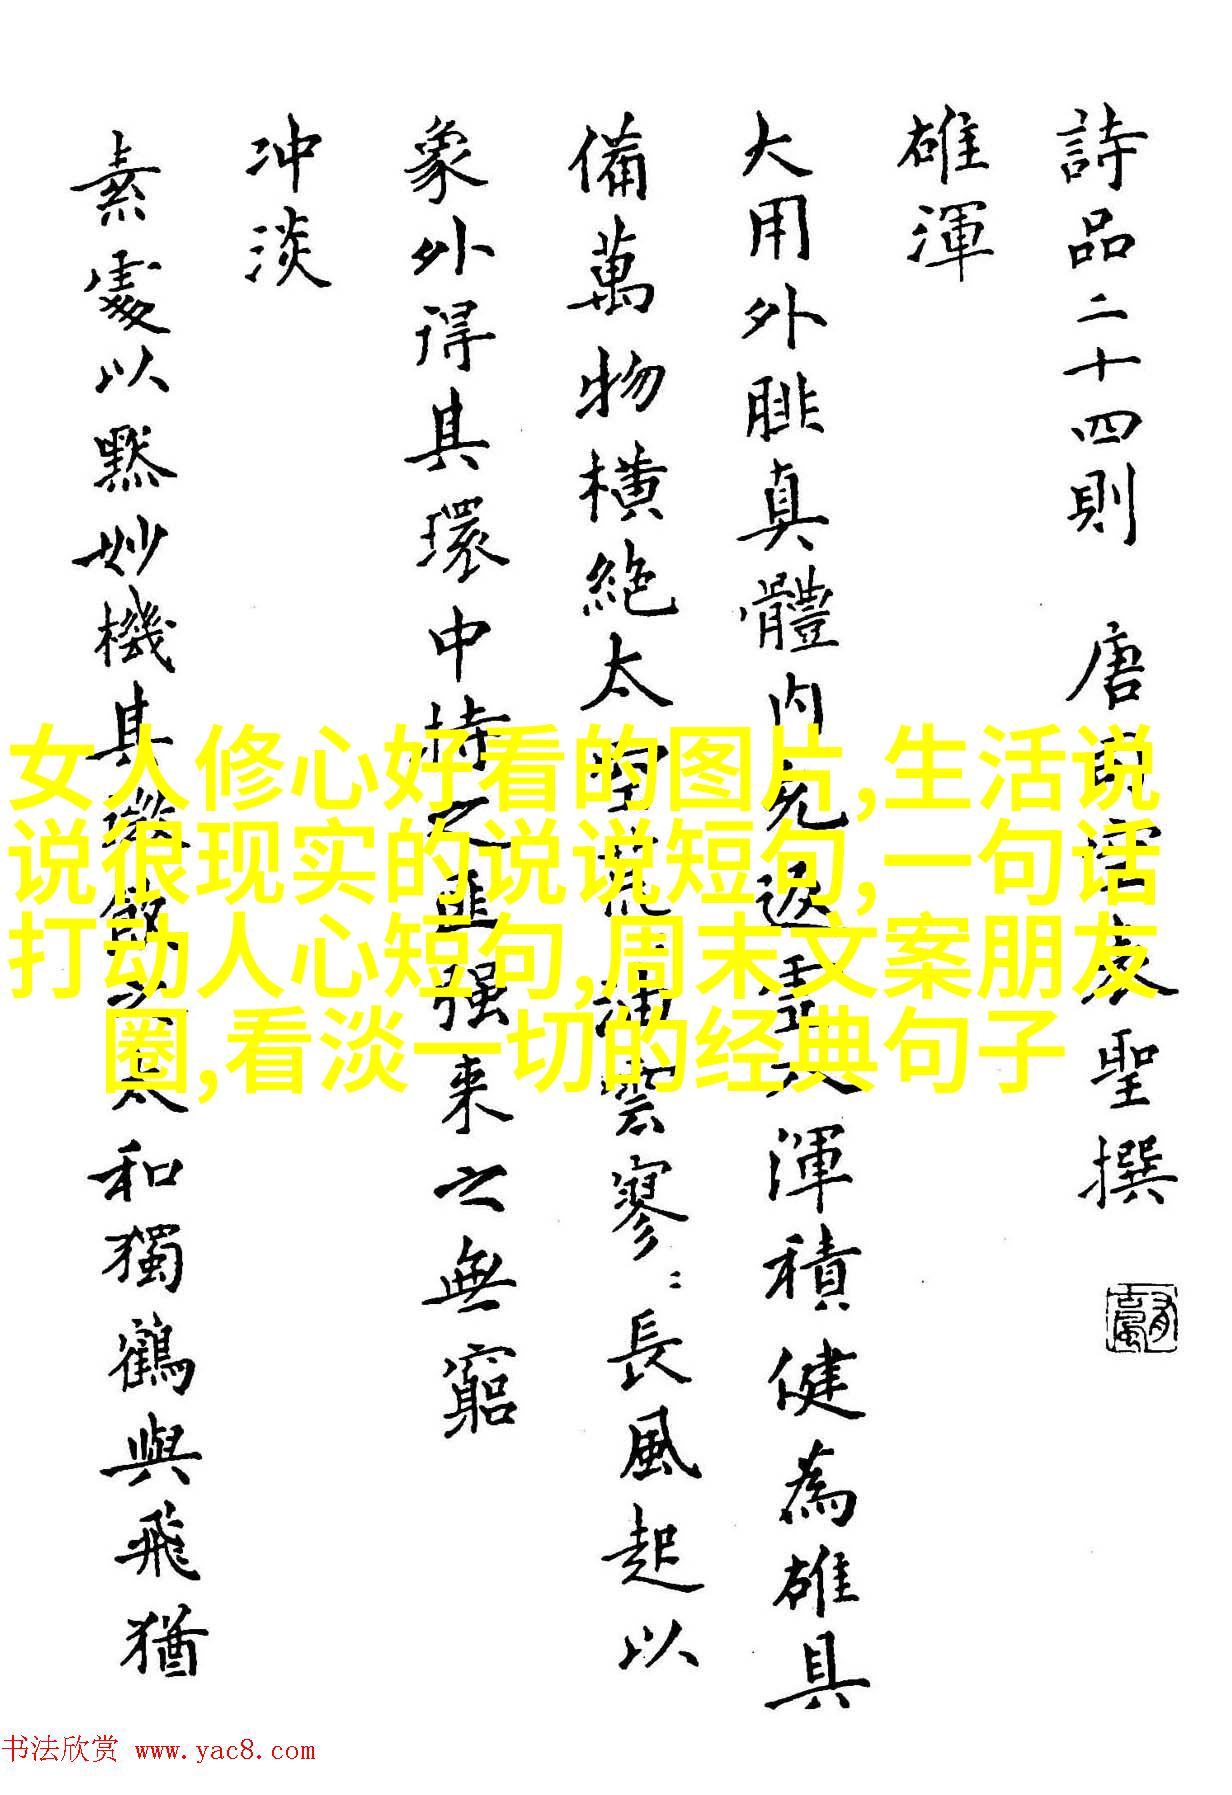 詩品二十四則 唐司空表聖撰
雄渾
大用外腓真體内充返虛入渾積健為雄具
備萬物橫絕太空荒荒油雲寥〻長風起以
象外得其環中持之匪强来之無窮
冲淡
素處以默妙機其微飲之太和獨鶴與飛猶
女人修心好看的图片,生活说
说很现实的说说短句,一句话
打动人心短句,周末文案朋友
圈,看淡一切的经典句子
书法欣赏 www.yac8.com